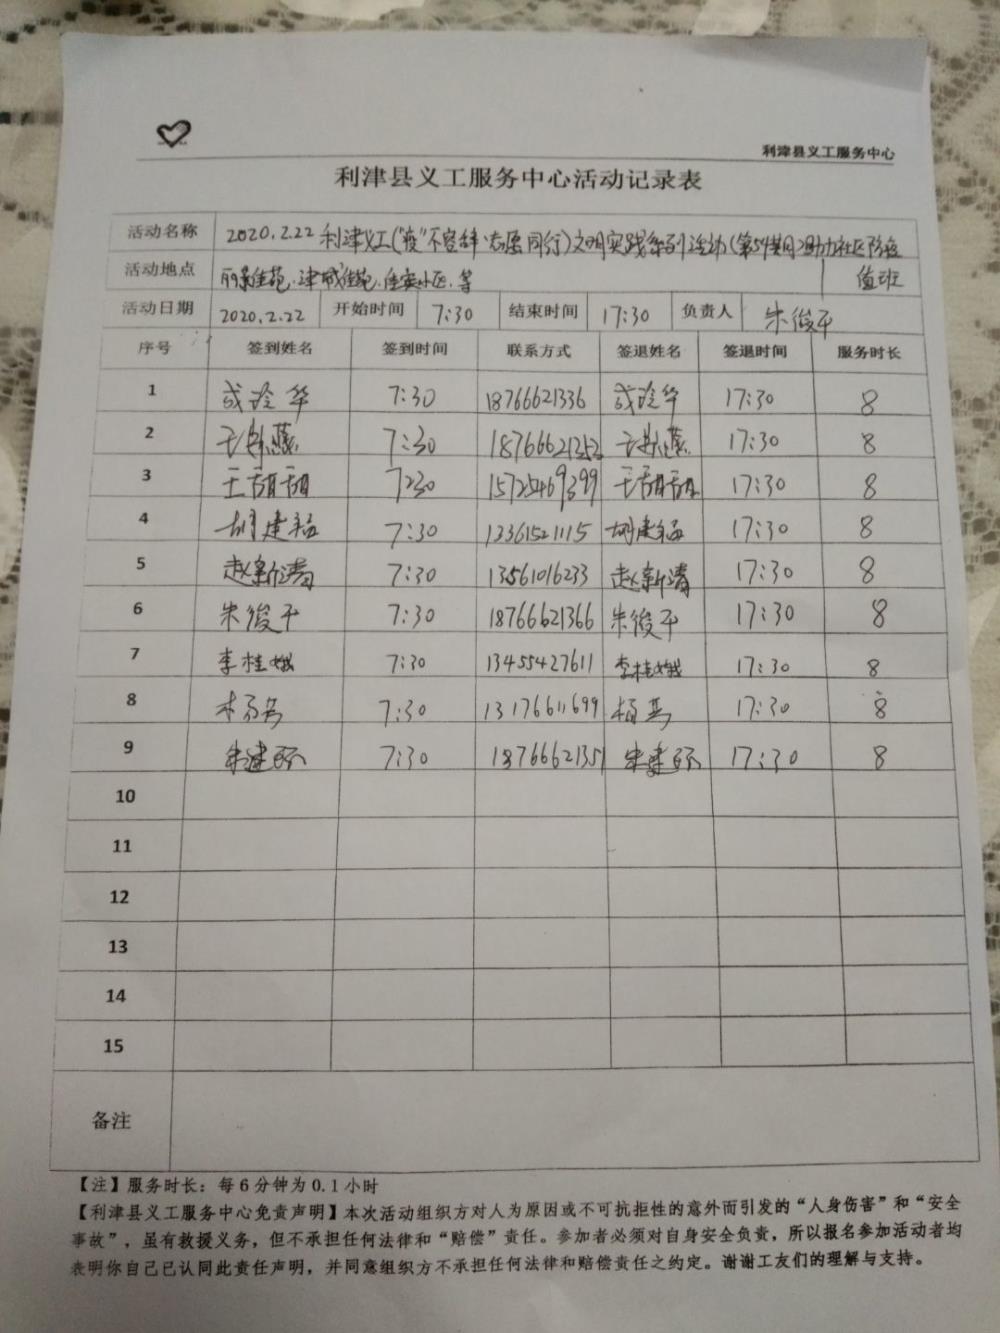 利津县义工服务中心
利津县义工服务中心活动记录表
活动名称 2020.2.22 利津义工("疫"不容辞·志愿同行)文明实践系列活动(第54期)助力社区防疫
活动地点 丽景佳苑.津城佳苑.佳安小区.等 值班
活动日期 2020.2.22 开始时间 7:30 结束时间 17:30 负责人 朱俊平
序号 签到姓名 签到时间 联系方式 签退姓名 签退时间 服务时长
1 7:30 18766621336 17:30 8
2 7:30 17:30 8
3 王胡胡 7:30 王胡胡 17:30 8
4 胡建福 7:30 13361521115 胡建福 17:30 8
5 赵新清 7:30 13561016233 赵新清 17:30 8
6 朱俊平 7:30 18766621366 朱俊平 17:30 8
7 李桂娥 7:30 13455427611 李桂娥 17:30 8
8 7:30 13176611699 17:30 8
9 7:30 18766621351 17:30 8
10
11
12
13
14
15
备注
【注】服务时长：每6分钟为0.1小时
【利津县义工服务中心免责声明】本次活动组织方对人为原因或不可抗拒性的意外而引发的“人身伤害”和“安全
事故”，虽有救援义务，但不承担任何法律和“赔偿”责任。参加者必须对自身安全负责，所以报名参加活动者均
表明你自己已认同此责任声明，并同意组织方不承担任何法律和赔偿责任之约定。谢谢工友们的理解与支持。